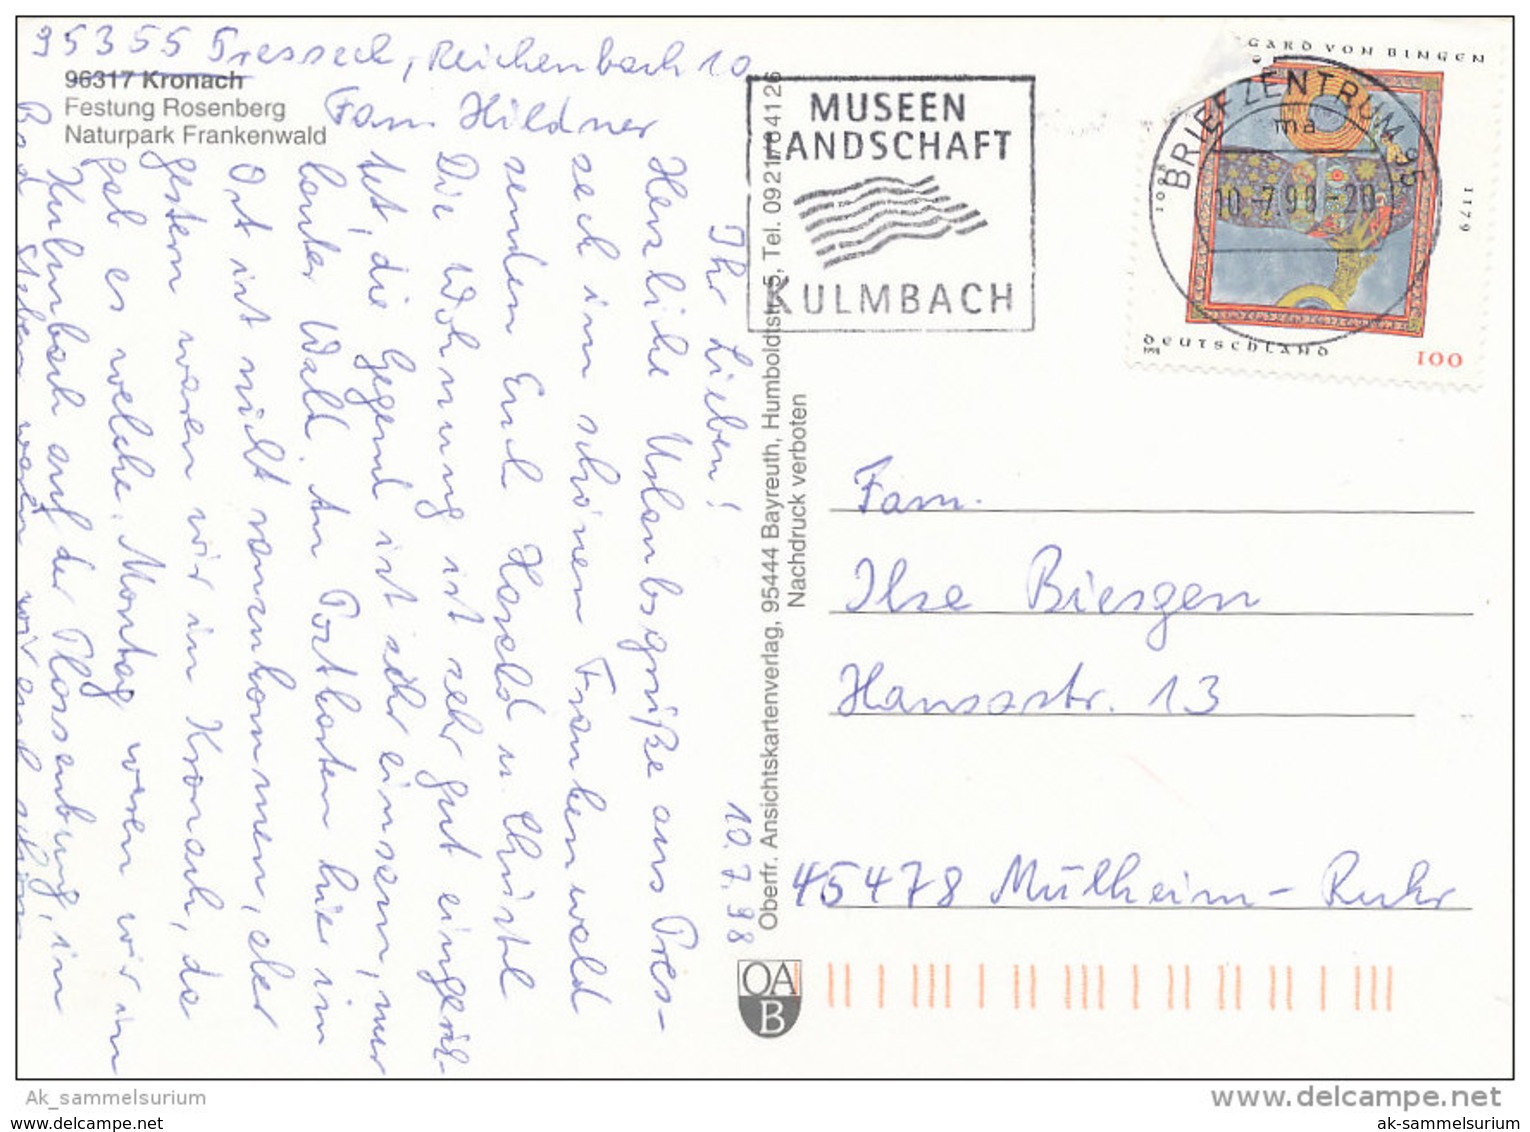 95355 Presseck, Reichenbach 10
Fam. Hildner
96317 Kronach
Festung Rosenberg
Naturpark Frankenwald
10.7.98
Ihr Lieben!
Herzliche Urlaubsgrüße aus Pres-
seck im schönen Frankenwald
senden Euch Harald u. Christl
Die Wohnung ist sehr gut eingerich-
tet, die Gegend ist sehr einsam, nur
lauter Wald. An Postkarten hier im
Ort ist nicht ranzukommen, aber
gestern waren wir in Kronach, da
gab es welche. Montag waren wir in
Kulmbach auf der Plassenburg, in
Bad Steben waren wir auch schon
Oberfr. Ansichtskartenverlag, 95444 Bayreuth, Humboldtstr. 5, Tel. 0921/64126
Nachdruck verboten
OA
B
MUSEEN
LANDSCHAFT
KULMBACH
BRIEFZENTRUM 95
ma
GARD VON BINGEN
1179
DEUTSCHLAND
1998
100
Fam.
Ilse Biesgen
Hansstr. 13
45478 Mülheim-Ruhr
Ak_sammelsurium
www.delcampe.net
www.ak-sammelsurium.de
ak-sammelsurium